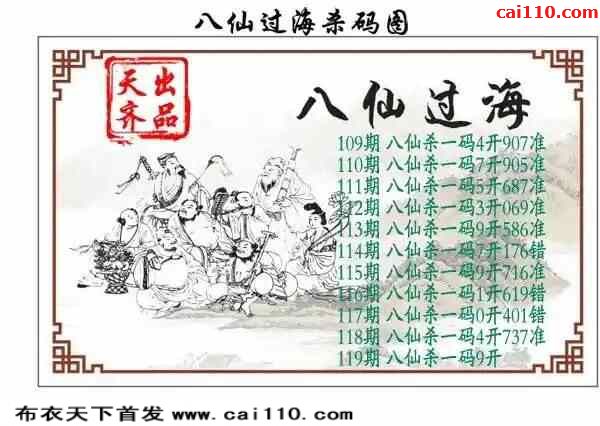 cai110.com
八仙过海杀码图
天齐出品
八仙过海
109期 八仙杀一码4开907准
110期 八仙杀一码7开905准
111期 八仙杀一码5开687准
112期 八仙杀一码3开069准
113期 八仙杀一码9开586准
114期 八仙杀一码7开176错
115期 八仙杀一码9开716准
116期 八仙杀一码1开619错
117期 八仙杀一码0开401错
118期 八仙杀一码4开737准
119期 八仙杀一码9开
布衣天下首发 www.cai110.com